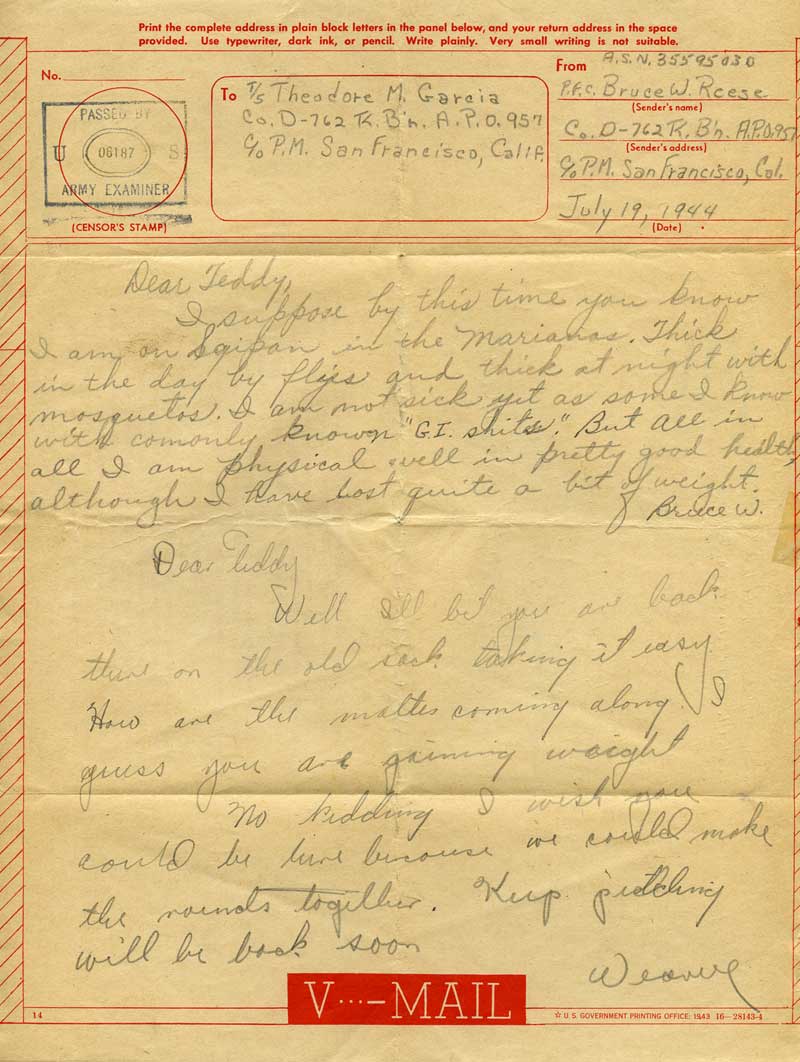 Print the complete address in plain block letters in the panel below, and your return address in the space
provided. Use typewriter, dark ink, or pencil. Write plainly. Very small writing is not suitable.
No.
PASSED BY
U 06187 S
ARMY EXAMINER
(CENSOR'S STAMP)
To T/5 Theodore M. Garcia
Co. D-762 TK. B'n. A.P.O. 957
C/o P.M. San Francisco, Calif.
From A.S.N. 35595030
P.F.C. Bruce W. Reese
(Sender's name)
Co. D-762 TK. B'n. A.P.O. 957
(Sender's address)
C/o P.M. San Francisco, Cal.
July 19, 1944
(Date)
Dear Teddy,
I suppose by this time you know
I am on Saipan in the Marianas. Thick
in the day by flys and thick at night with
mosquetos. I am not sick yet as some I know
with comonly known "G.I. shits." But all in
all I am physical well in pretty good health,
although I have lost quite a bit of weight.
Bruce W.
Dear Teddy
Well I'll bet you are back
there on the old sack taking it easy
How are the coming along. I
guess you are gaining weight
No kidding I wish you
could be here because we could make
the rounds together. Keep pitching
will be back soon
Weaver
V···—MAIL
14
☆ U. S. GOVERNMENT PRINTING OFFICE: 1943 16—28143-4